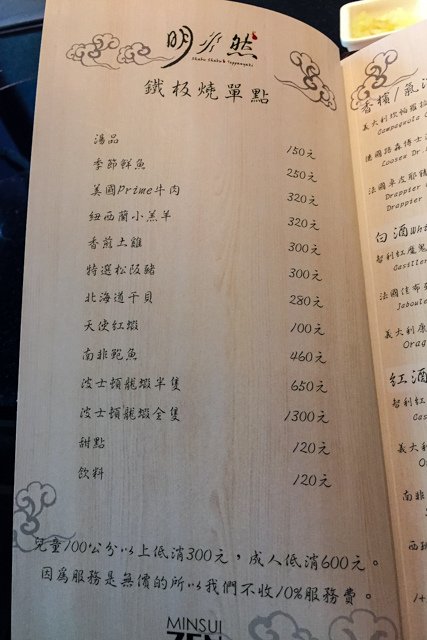 明水然
Shabu Shabu & Teppanyaki
鐵板燒單點
湯品 150元
季節鮮魚 250元
美國Prime牛肉 320元
紐西蘭小羔羊 320元
香煎土雞 300元
特選松阪豬 300元
北海道干貝 280元
天使紅蝦 100元
南非鮑魚 460元
波士頓龍蝦半隻 650元
波士頓龍蝦全隻 1300元
甜點 120元
飲料 120元
兒童100公分以上低消300元，成人低消600元。
因為服務是無價的所以我們不收10%服務費。
MINSUI
ZEN
香檳/氣
義大利坎帕羅
Campagnola
德國路森博士
Loosen Dr.
法國卓皮耶
Drappier
Drappier
白酒Whi
智利紅魔鬼
法國佳布
Jaboule
義大利
紅酒
智利紅
義大
南非
西班